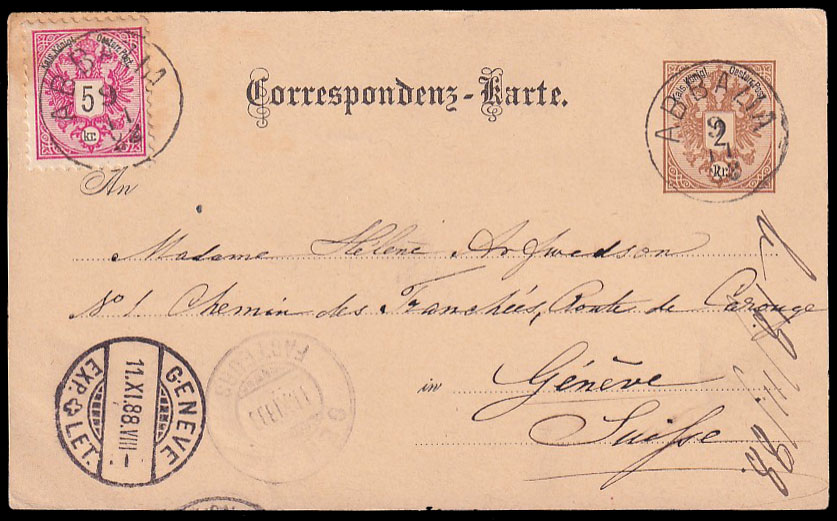 Kais. Königl. Oesterr. Post.
5
kr.
ABBAZIA
9
11
88
Correspondenz-Karte.
Kais. Königl. Oesterr. Post.
2
kr.
ABBAZIA
9
11
88
An
Madame Hélène Arfwedson
No 1. Chemin des Tranchées, Route de Carouge
in Génève
Suisse
GENÈVE
11.XI.88.VIII-
EXP. LET.
FACTEURS